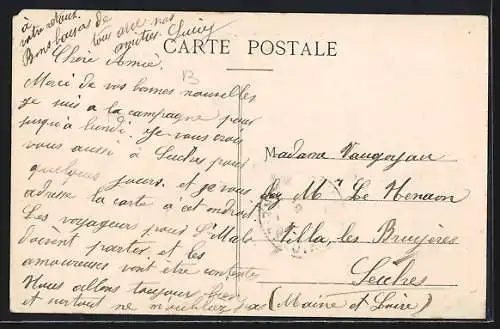 CARTE POSTALE
Chère Amie.
Merci de vos bonnes nouvelles
je suis a la campagne pour
jusqu'à lundi. je vous crois
vous aussi à Seiches pour
quelques jours. et je vous
adresse la carte à cet endroit
Les voyageurs pour St Malo
doivent partir, et les
amoureuses vont être contentes
Nous allons toujours bien
et surtout ne m'oubliez pas
à
votre retour.
Bons baisers de
tous avec nos
amitiés.
Madame
chez Mr Le
Villa, les Bruyères
Seiches
(Maine et Loire)